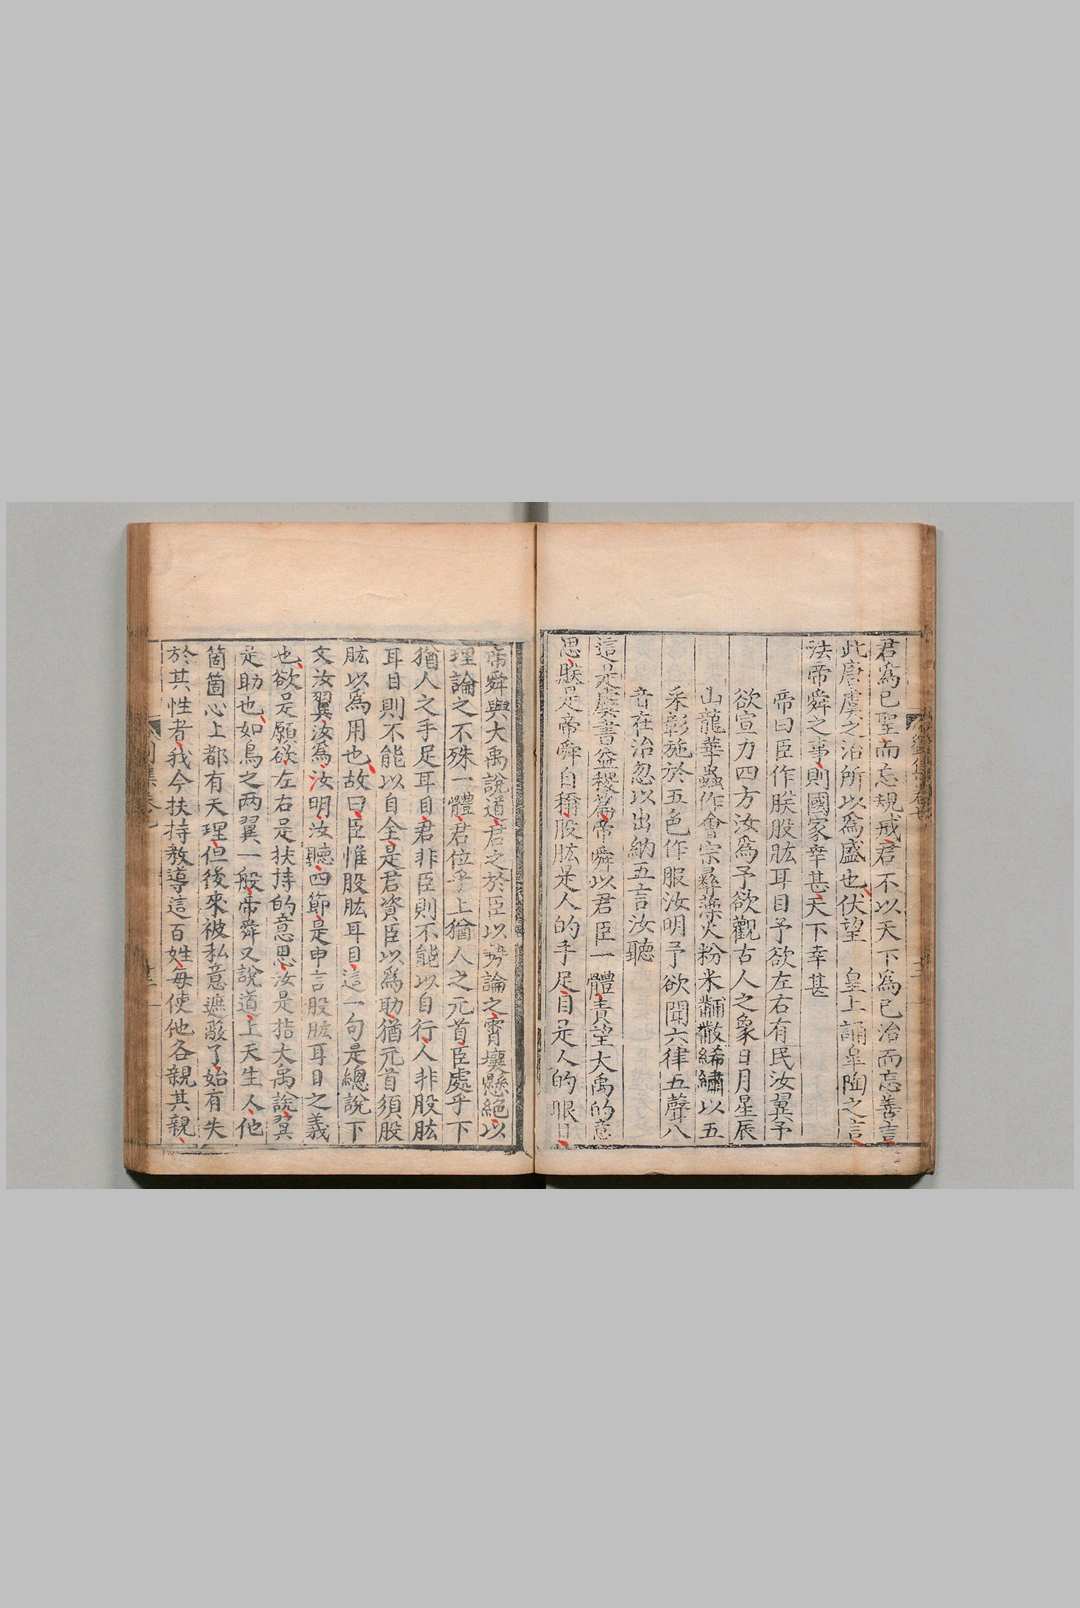 君爲已聖而忘規戒君不以天下爲已治而忘善言
此唐虞之治所以爲盛也伏望 皇上誦臯陶之言
法帝舜之事則國家幸甚天下幸甚
帝曰臣作朕股肱耳目予欲左右有民汝翼予
欲宣力四方汝爲予欲觀古人之象日月星辰
山龍華蟲作會宗彝藻火粉米黼黻絺繡以五
采彰施於五色作服汝明予欲聞六律五聲八
音在治忽以出納五言汝聽
這是虞書益稷篇帝舜以君臣一體責望大禹的意
思朕是帝舜自稱股肱是人的手足目是人的眼目
帝舜與大禹說道君之於臣以勢論之霄壤懸絕以
理論之不殊一體君位乎上猶人之元首臣處乎下
猶人之手足耳目君非臣則不能以自行人非股肱
耳目則不能以自全是君資臣以爲助猶元首須股
肱以爲用也故曰臣惟股肱耳目這一句是總說下
文汝翼汝爲汝明汝聽四節是申言股肱耳目之義
也欲是願欲左右是扶持的意思汝是指大禹說翼
是助也如鳥之两翼一般帝舜又說道上天生人他
箇箇心上都有天理但後來被私意遮蔽了始有失
於其性者我今扶持教導這百姓每使他各親其親